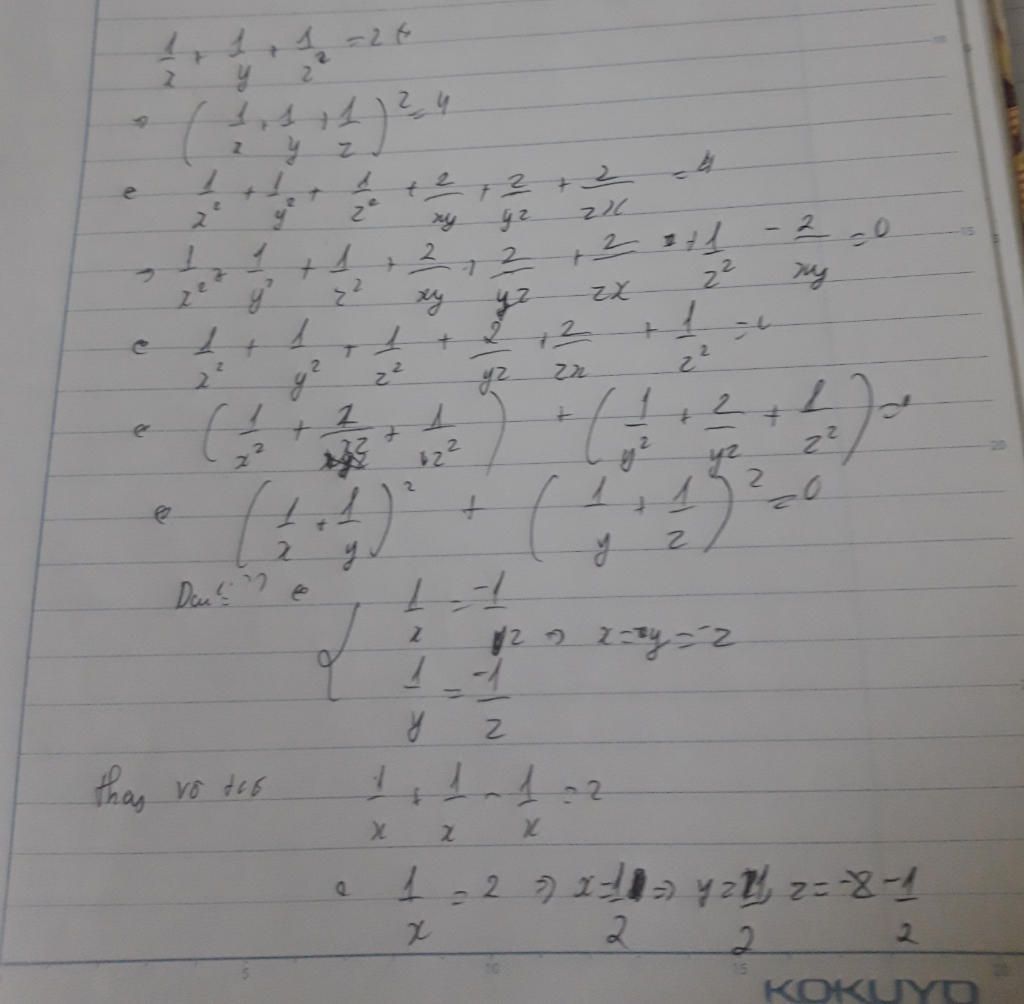 1/x + 1/y + 1/z² = 2
(1/x + 1/y + 1/z)² = 4
1/x² + 1/y² + 1/z² + 2/xy + 2/yz + 2/zx = 4
⇒ 1/x² + 1/y² + 1/z² + 2/xy + 2/yz + 2/zx + 1/z² - 2/xy = 0
1/x² + 1/y² + 1/z² + 2/yz + 2/zx + 1/z² =
(1/x² + 2/ + 1/z²) + (1/y² + 2/yz + 1/z²) =
(1/x + 1/y)² + (1/y + 1/z)² = 0
1/x = -1/z ⇒ x = y = -z
1/y = -1/z
thay vô
1/x + 1/x - 1/x = 2
1/x = 2 ⇒ x = 1/2 ⇒ y = 1/2, z = -1/2
5 10 15 20
15
20
KOKUYO